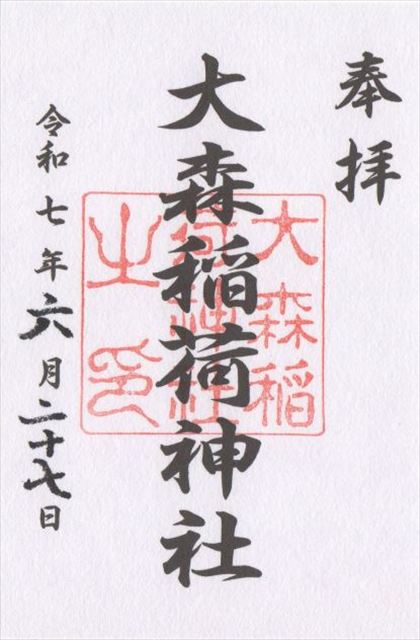 奉拝
大森稲荷神社
大森稲
荷神社
之印
令和七年六月二十七日